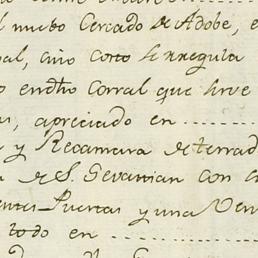 nuebo Cercado de Adobe, e
al, cuio corto è irregula
endho Corral que sirve
s, apreciado en ..........
y Recamara de terrad
de S. Sevastian con
Puertas y una Ven
todo en ..........